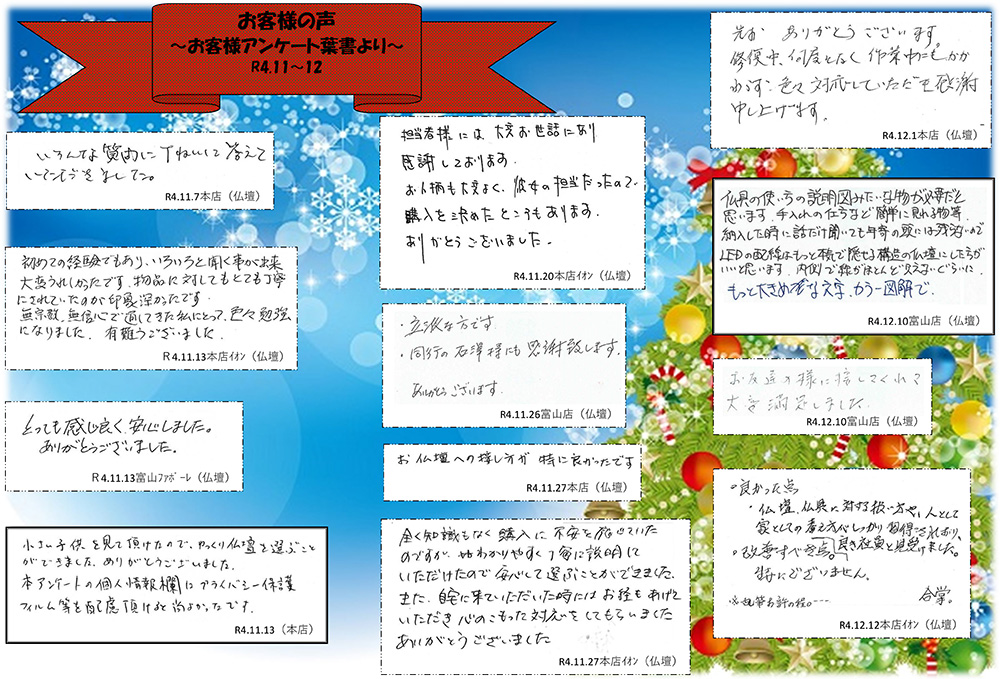 お客様の声
～お客様アンケート葉書より～
R4.11～12
いろんな質問にていねいに答えて
いただきました。
R4.11.7本店（仏壇）
初めての経験でもあり、いろいろと聞く事が出来
大変うれしかったです。物品に対してもとても丁寧
にされていたのが印象深かったです。
無宗教、無信心で過してきた私にとって、色々勉強
になりました。有難うございました。
R4.11.13本店ｲｵﾝ（仏壇）
とっても感じ良く、安心しました。
ありがとうございました。
R4.11.13富山ﾌｧﾎﾞｰﾚ（仏壇）
小さい子供を見て頂けたので、ゆっくり仏壇を選ぶこと
ができました。ありがとうございました。
本アンケートの個人情報欄にプライバシー保護
フィルム等を配慮頂けると尚よかったです。
R4.11.13（本店）
担当者様には大変お世話になり
感謝しております。
お人柄も大変よく、彼女の担当だったので、
購入を決めたところもあります。
ありがとうございました。
R4.11.20本店ｲｵﾝ（仏壇）
・立派な方です。
・同行の石澤様にも感謝致します。
ありがとうございます。
R4.11.26富山店（仏壇）
お仏壇への接し方が特に良かったです
R4.11.27本店（仏壇）
全く知識もなく購入に不安を抱いていた
のですが、わかりやすく丁寧に説明して
いただけたので安心して選ぶことができました。
また、自宅に来ていただいた時にはお経もあげて
いただき心のこもった対応をしてもらいました
ありがとうございました
R4.11.27本店ｲｵﾝ（仏壇）
ありがとうございます
修復中、何度となく作業中にもかか
わらず、色々対応していただき感謝
申し上げます。
R4.12.1本店（仏壇）
仏具の使い方の説明図みたいな物が必要だと
思います。手入れの仕方など簡単に見れる物等。
納入した時に話だけ聞いても年寄の頭には残らないので
LEDの配線はもっと楽で隠せる構造の仏壇にした方が
いいと思います。内側で線がほとんど見えないぐらいに。
もっと大きめな文字、カラー図解で。
R4.12.10富山店（仏壇）
お友達の様に接してくれて
大変満足しました。
R4.12.10富山店（仏壇）
・良かった点
・仏壇、仏具に対する扱い方や、人として
家としての考え方がしっかり習得されており、
良き社員と見受けました。
・改善すべき点。
特にございません。
合掌。
R4.12.12本店ｲｵﾝ（仏壇）